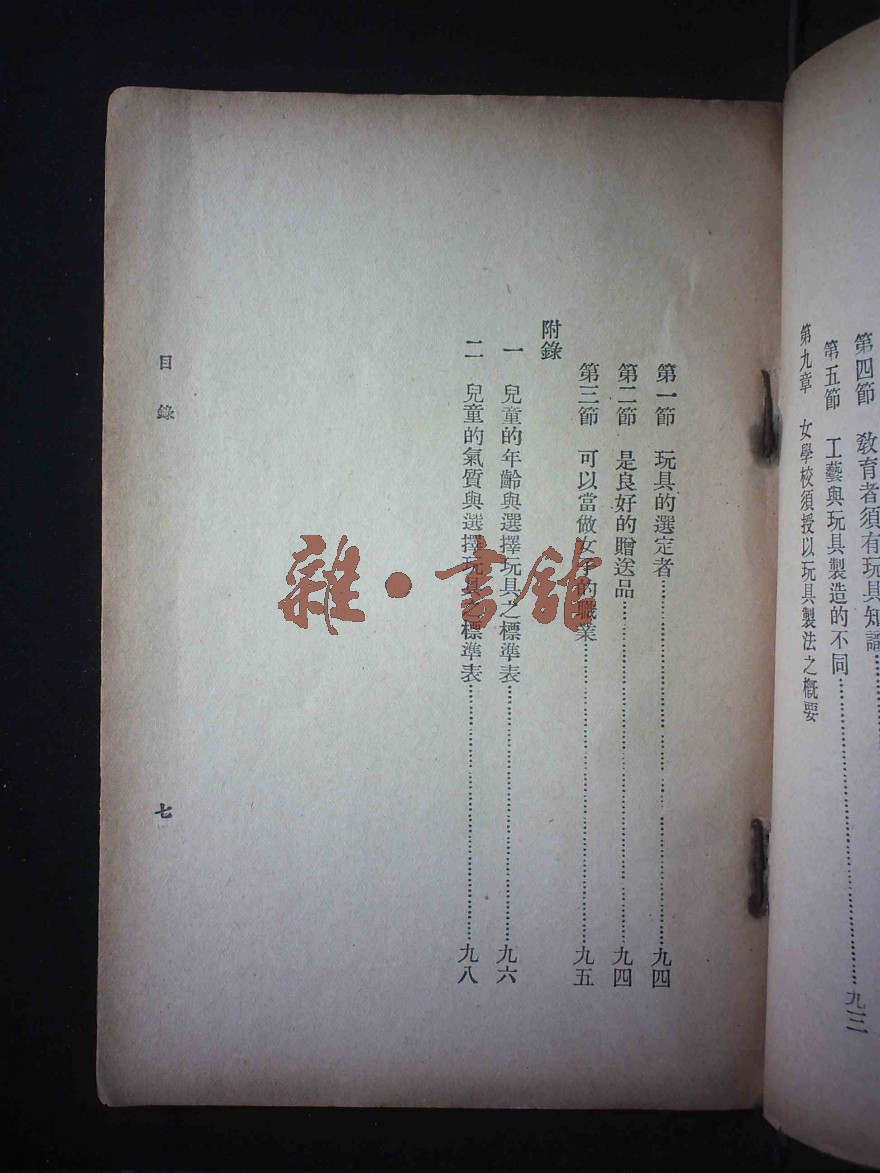 第四節　教育者須有玩具知識
第五節　工藝與玩具製造的不同……九三
第九章　女學校須授以玩具製法之概要
第一節　玩具的選定者……九四
第二節　是良好的贈送品……九四
第三節　可以當做女子的職業……九五
附錄
一　兒童的年齡與選擇玩具之標準表……九六
二　兒童的氣質與選擇玩具之標準表……九八
目錄
七
雜・書館